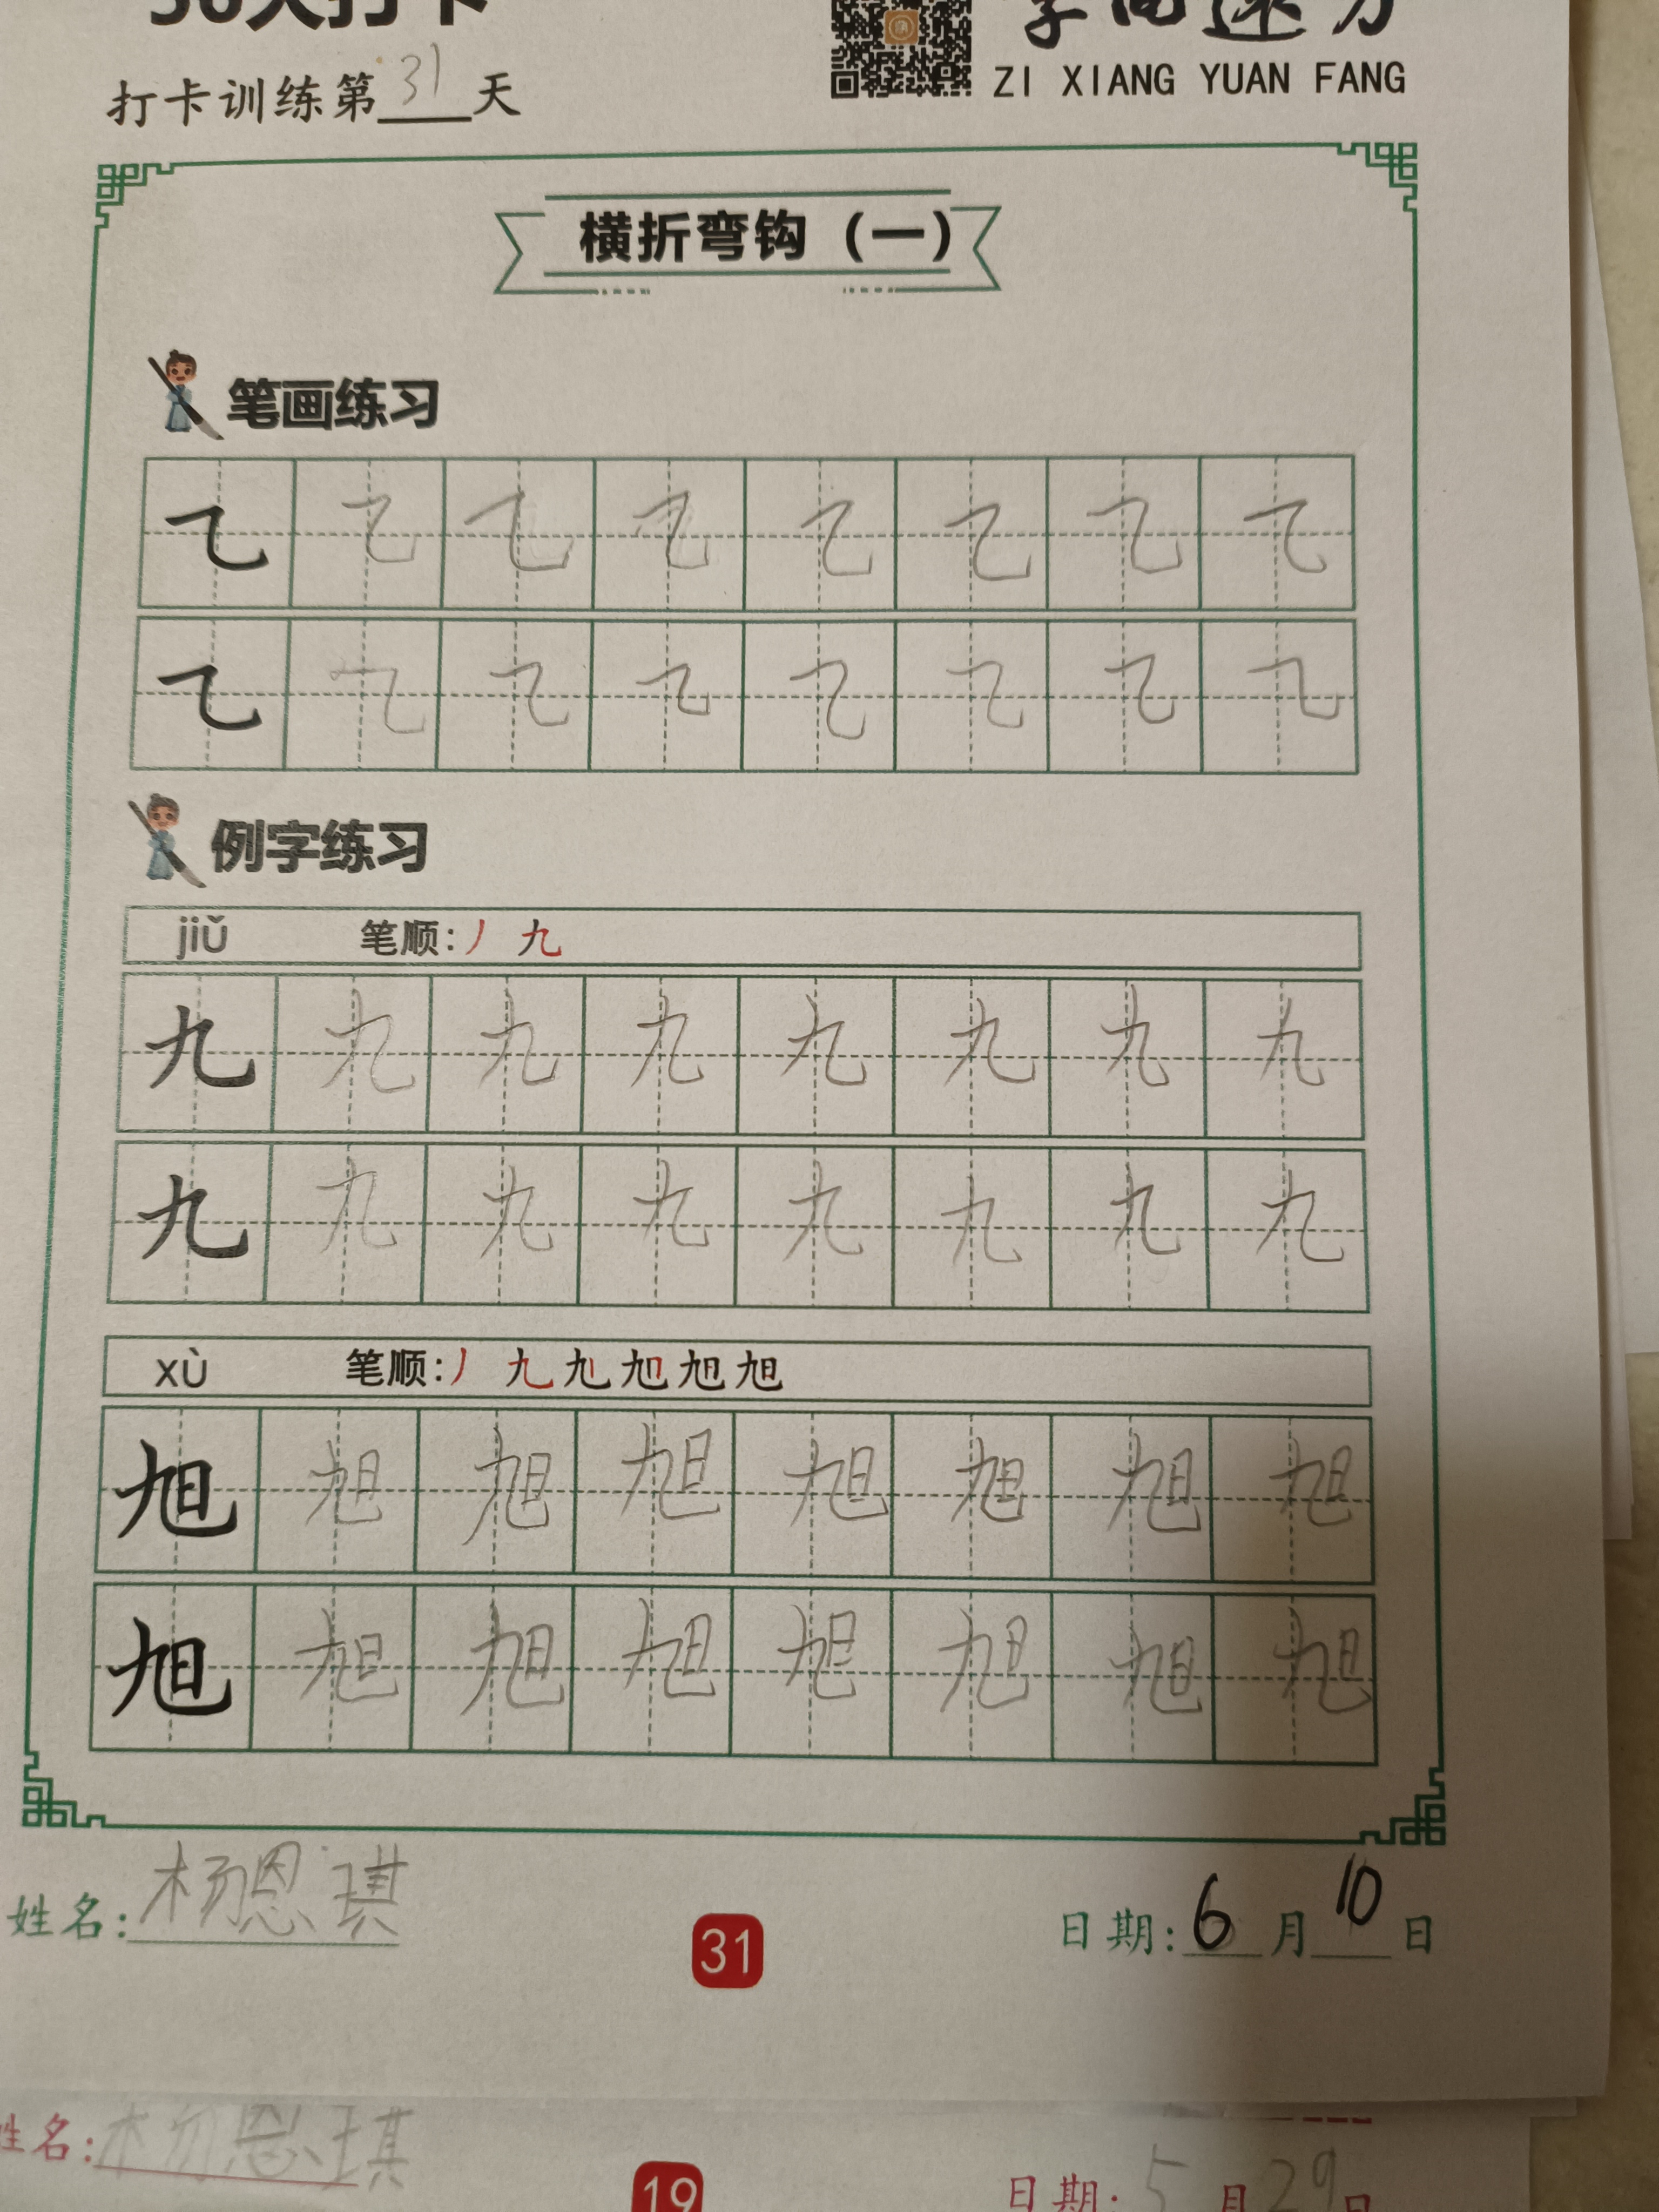 打卡训练第31天
ZI XIANG YUAN FANG
横折弯钩（一）
笔画练习
㇈ ㇈ ㇈ ㇈ ㇈ ㇈ ㇈ ㇈
㇈ ㇈ ㇈ ㇈ ㇈ ㇈ ㇈ ㇈
例字练习
jiǔ 笔顺：丿 九
九 九 九 九 九 九 九 九
九 九 九 九 九 九 九 九
xù 笔顺：丿 九 旭 旭 旭
旭 旭 旭 旭 旭 旭 旭 旭
旭 旭 旭 旭 旭 旭 旭 旭
姓名：杨恩琪
31
日期：6月10日
姓名：杨恩琪
19
日期：5月29日